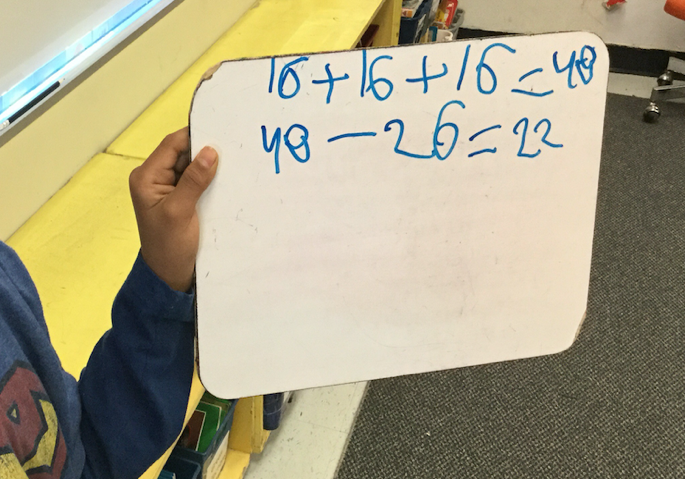 16+16+16=48
48-26=22